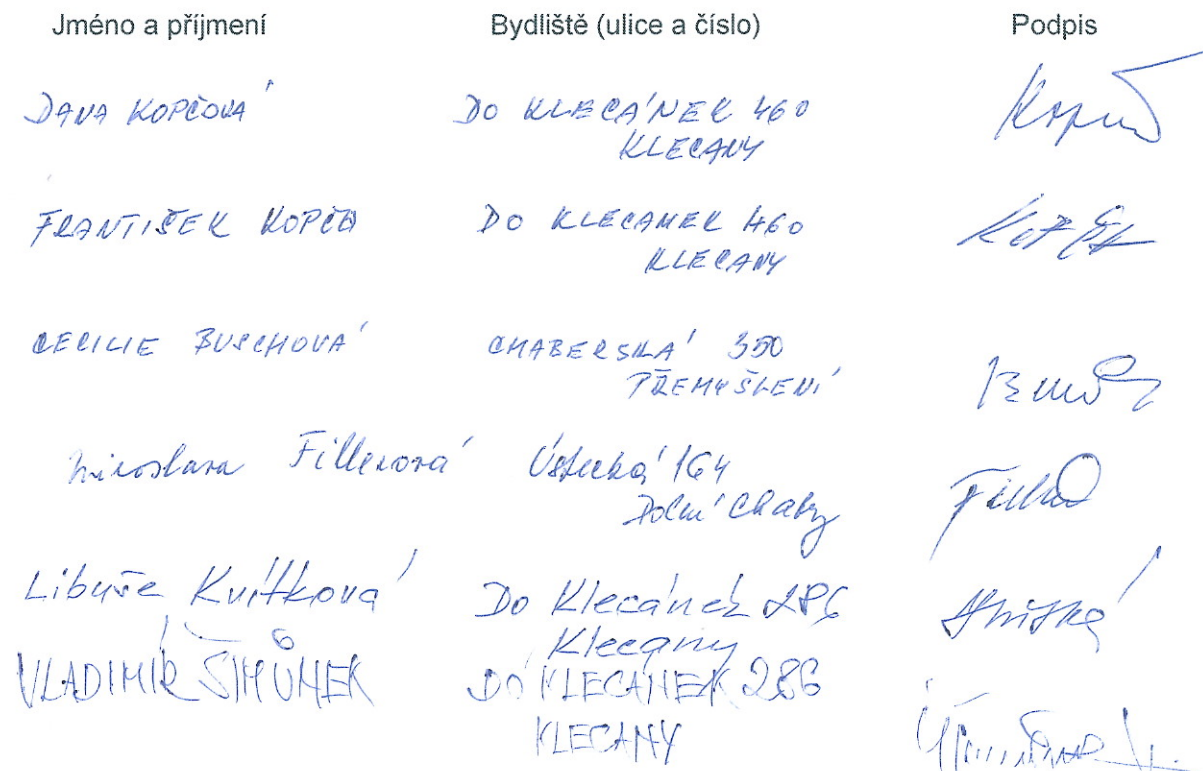 Jméno a příjmení Bydliště (ulice a číslo) Podpis
DANA KOPČOVÁ DO KLECÁNEK 460
KLECANY
FRANTIŠEK KOPČA DO KLECANEK 460
KLECANY
CECILIE BUSCHOVÁ CHABERSKÁ 350
PŘEMYŠLENÍ
Miroslava Fillerová Ústecká 164
Dolní Chabry
Libuše Kvítková Do Klecánek 286
Klecany
VLADIMÍR ŠIMŮNEK DO KLECÁNEK 286
KLECANY